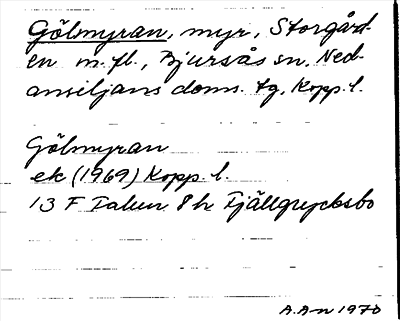 Gölmyran, myr, Storgård-
en m.fl., Bjursås sn, Ned-
ansiljans doms. tg, Kopp. l.
Gölmyran
ek (1969) Kopp. l.
13 F Falun 8 h Fjällgrycksbo
A.A-n 1970